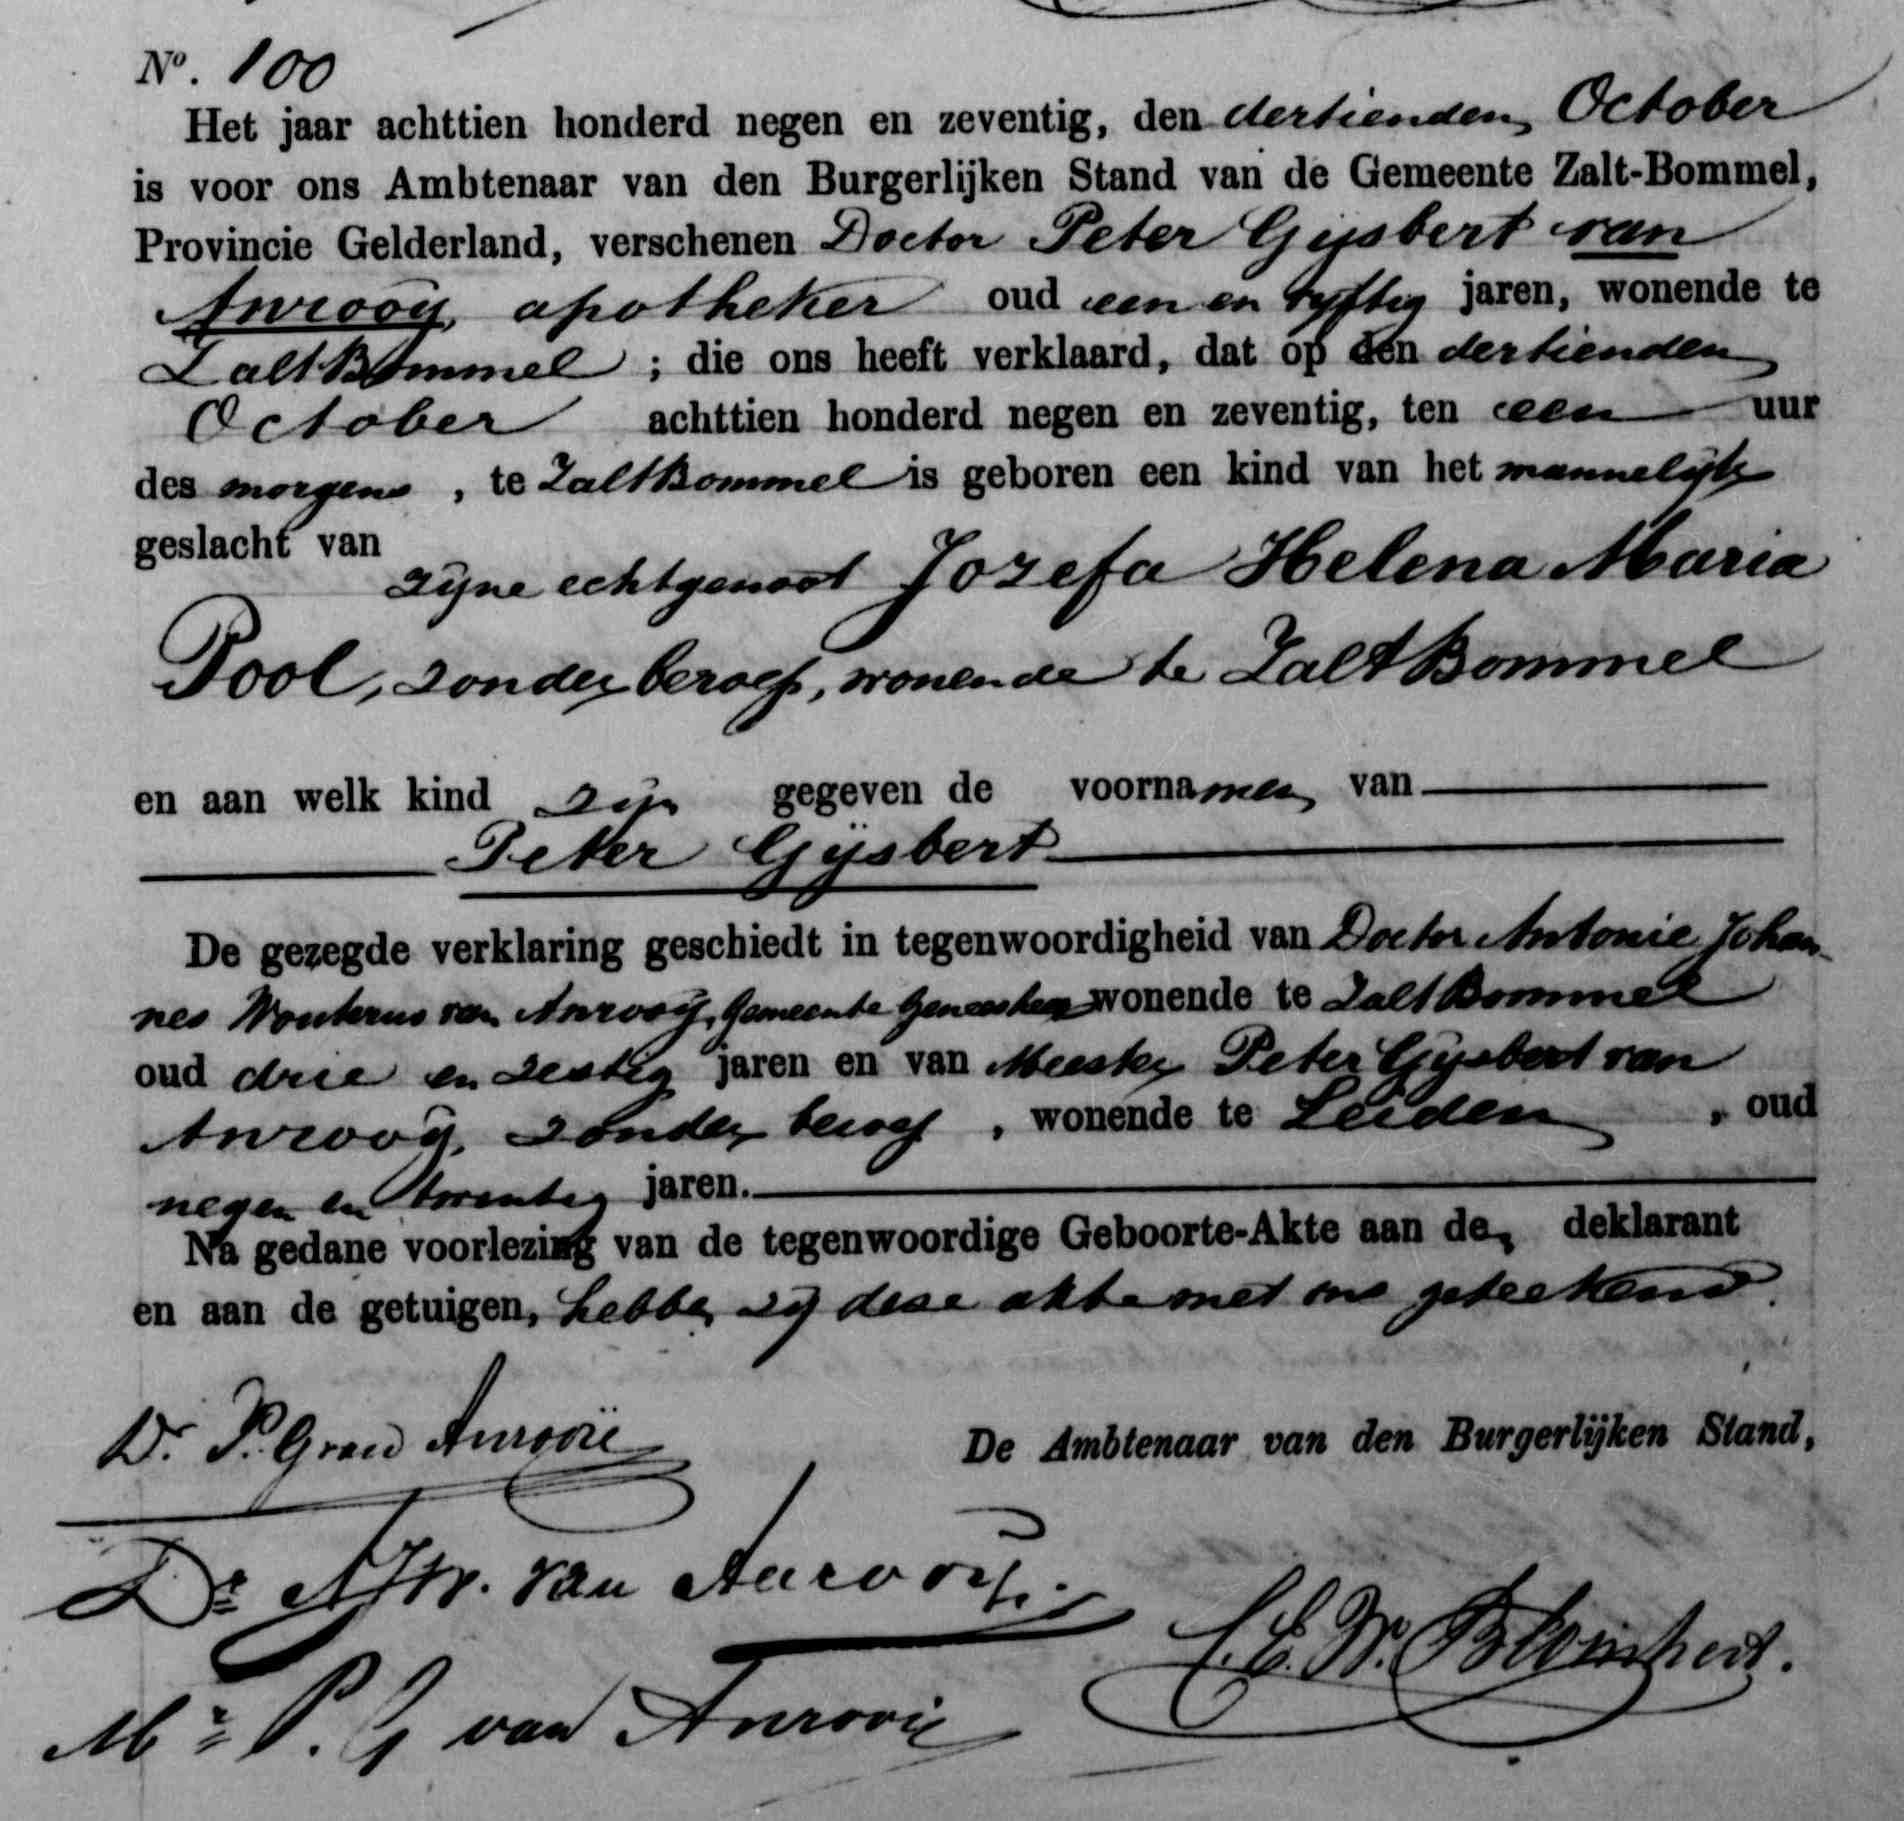 Nº. 100
Het jaar achttien honderd negen en zeventig, den dertienden October
is voor ons Ambtenaar van den Burgerlijken Stand van de Gemeente Zalt-Bommel,
Provincie Gelderland, verschenen Doctor Peter Gijsbert van
Anrooij, apotheker oud een en vyftig jaren, wonende te
ZaltBommel ; die ons heeft verklaard, dat op den dertienden
October achttien honderd negen en zeventig, ten een uur
des morgens , te ZaltBommel is geboren een kind van het mannelijk
geslacht van
zijne echtgenoot Jozefa Helena Maria
Pool, zonder beroep, wonende te ZaltBommel
en aan welk kind zijn gegeven de voornamen van
Peter Gijsbert
De gezegde verklaring geschiedt in tegenwoordigheid van Doctor Antonie Johan-
nes Wouterus van Anrooij, Gemeente Geneesheer wonende te ZaltBommel
oud drie en zestig jaren en van Meester Peter Gijsbert van
Anrooij, zonder beroep , wonende te Leiden , oud
negen en twintig jaren.
Na gedane voorlezing van de tegenwoordige Geboorte-Akte aan de, deklarant
en aan de getuigen, hebben zij deze akte met ons geteekend.
Dr. P. G van Anrooïe
De Ambtenaar van den Burgerlijken Stand,
Dr. AJW. van Anrooij
Mr. P. G van Anrooij